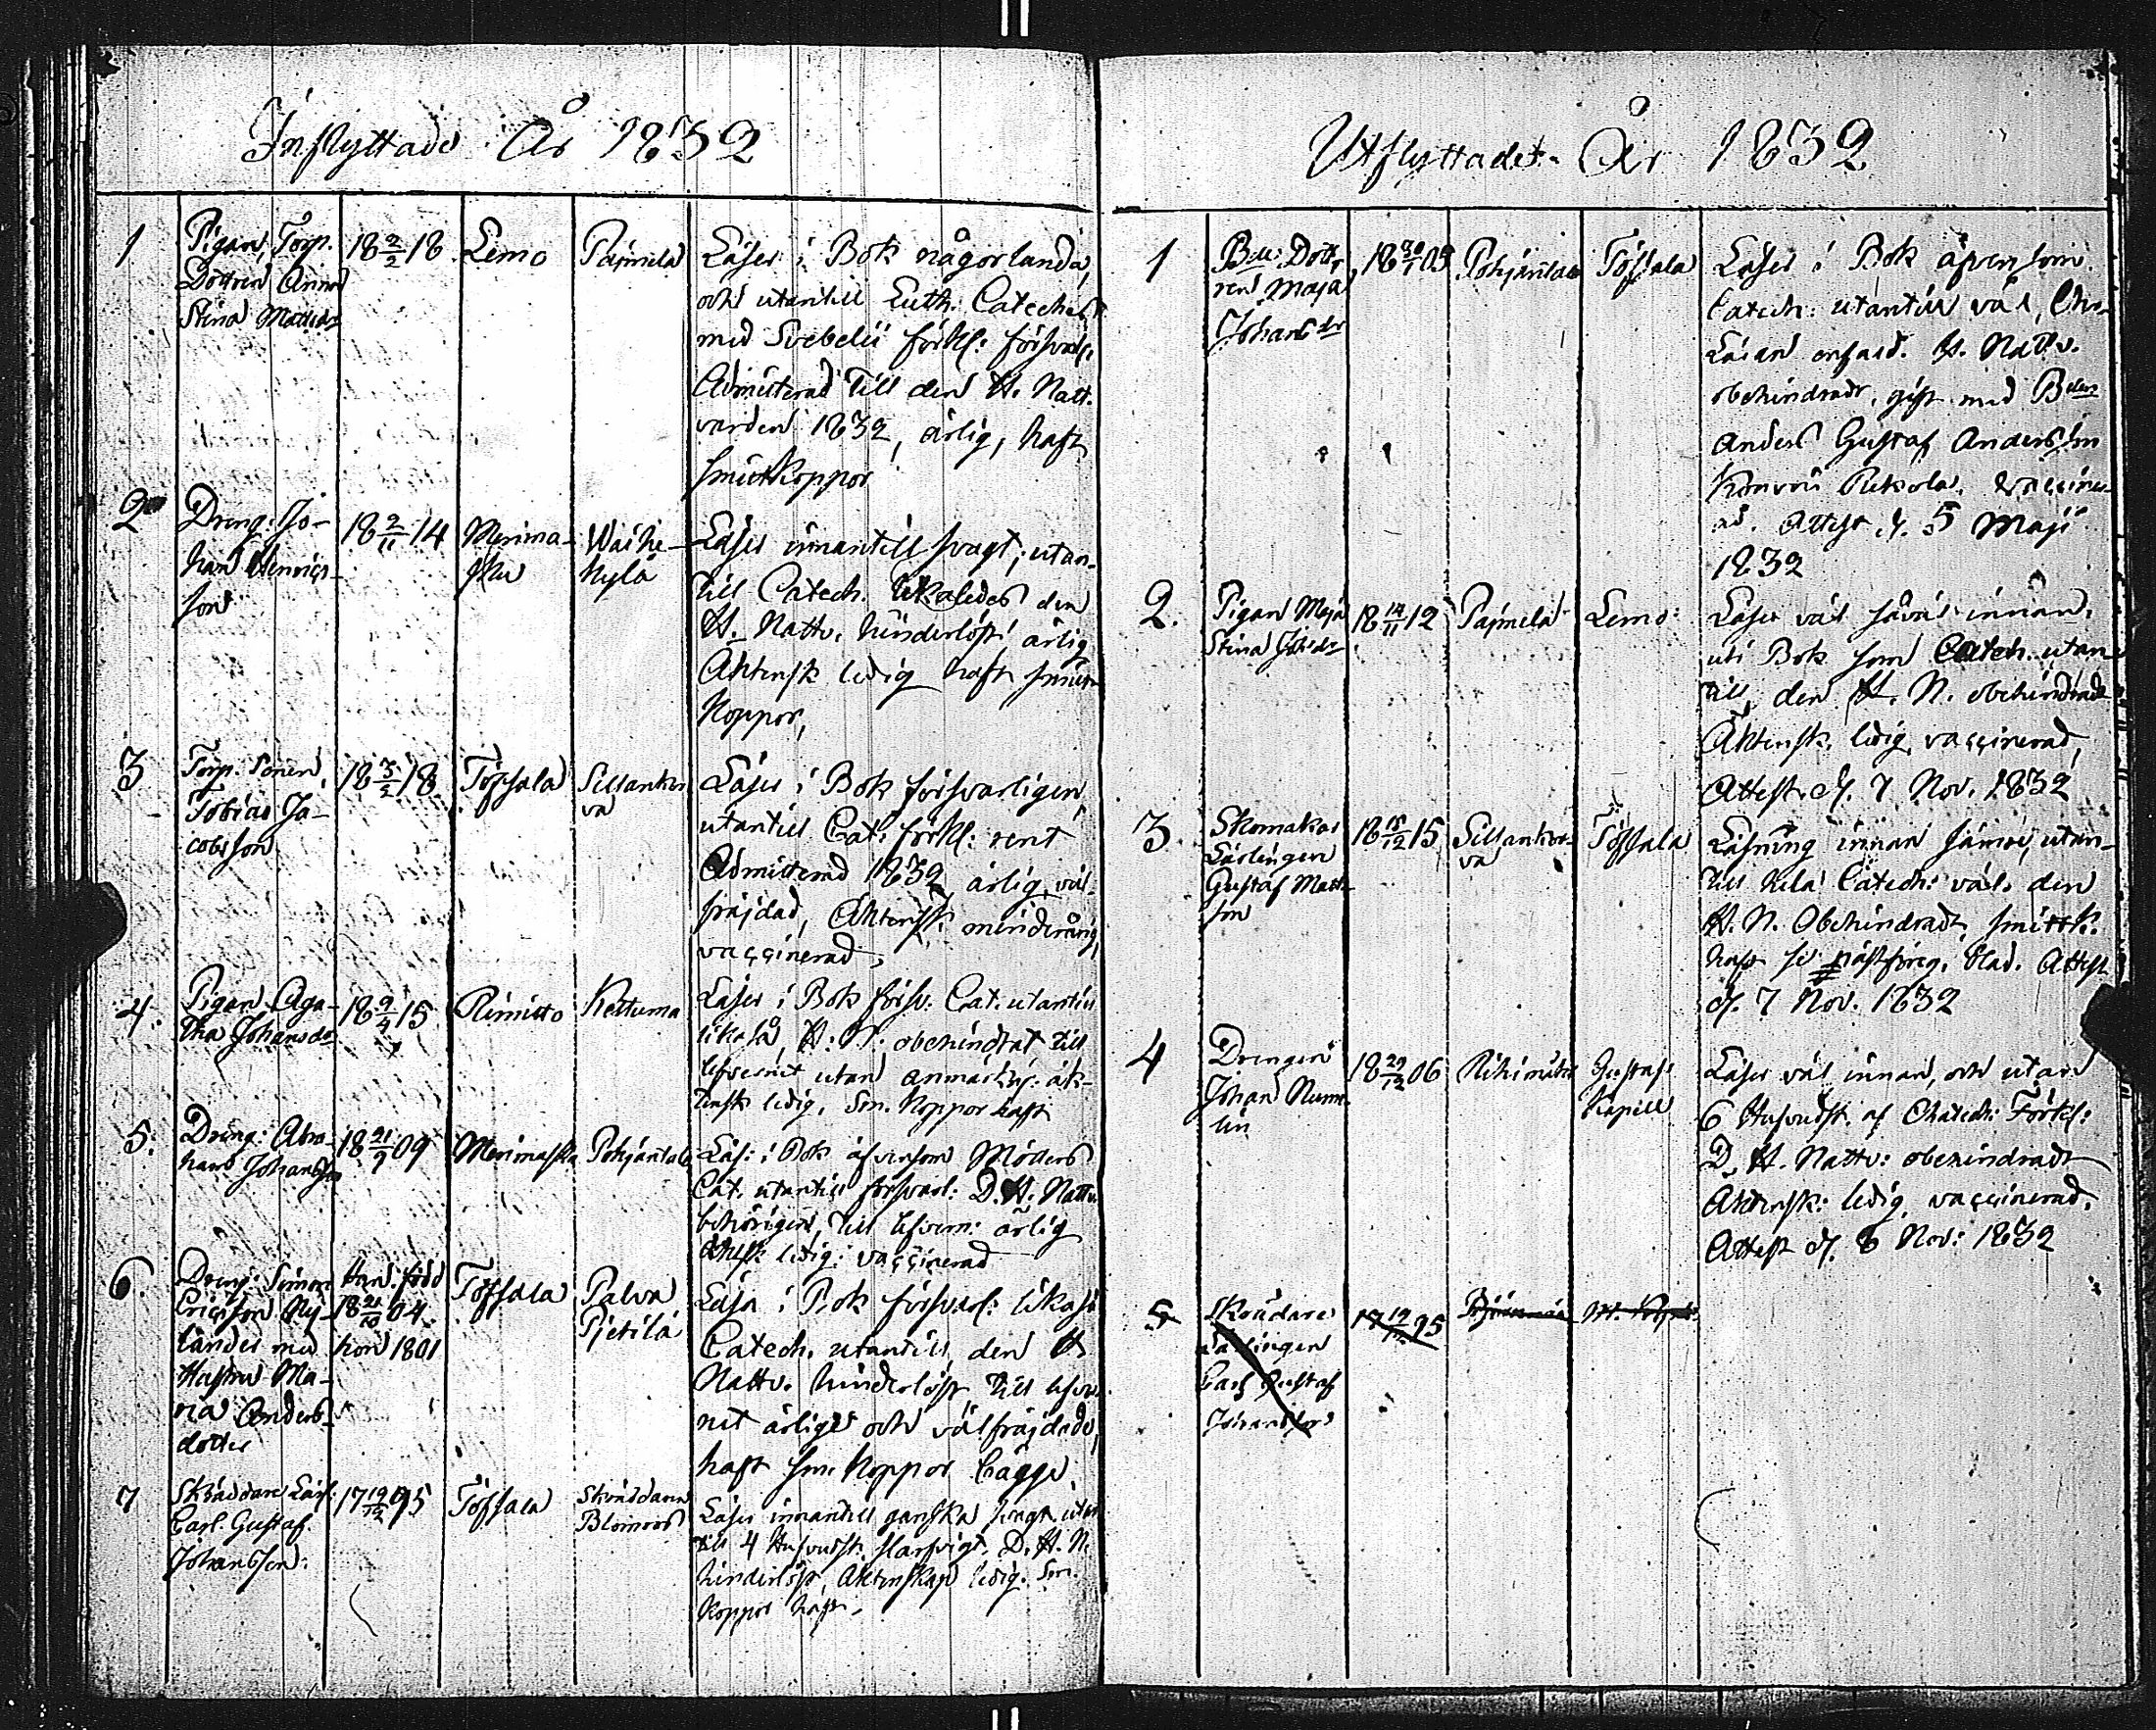 Inflyttade År 1832
1
Pigan, Torp.
Dottren Anna
Stina Mattsdr
18 2/2 18
Lemo
Pajmela
Läser i Bok någorlunda,
och utantill Luth: Cateches
med Svebelii förkl: försvarl:
Admitterad Till den H. Natt-
varden 1832, ärlig, haft
smittkoppor
2
Dreng: Jo-
han Henrics-
son
18 2/11 14
Merima-
sku
Waihe-
kylä
Läser innantill svagt, utan-
till Catech. likaledes den
H. Nattv. hinderlöst, ärlig
Äktensk ledig haft smitt-
koppor,
3
Torp. Sonen,
Tobias Ja-
cobsson
18 3/2 18
Töfsala
Sillankor-
va
Läser i Bok försvarligen,
utantill Cat: förkl: rent
Admitterad 1832, ärlig, väl-
fräjdad, Äktensk: minderårig,
vaccinerad,
4.
Pigan Aga-
tha Johansdr
18 9/4 15
Rimitto
Kettuma
Läser i Bok försv: Cat. utantill
likaså, H. N. obehindrat till
lefvernet utan anmärkn: äk-
tensk ledig, Sm. koppor haft
5.
Dreng: Abra-
ham Johansson
18 21/7 09
Merimasku
Pohjantalo
Läs: i Bok äfvensom Möllers
Cat. utantill försvarl: D. H. Nattv.
behörigen, till lefvern: ärlig
Äktsk: ledig: vaccinerad
6.
Dreng: Simon
Ericsson Ny-
lander med
Hustru Ma-
ria Anders-
dotter
Han. född
18 21/10 04.
hon 1801
Töfsala
Palva
Pietilä
Läsa i Bok försvarl: likaså
Catech. utantill, den H
Nattv. hinderlöst till lefver-
net ärlige och välfräjdade,
haft sm. koppor bägge.
7
Skräddare Lärl:
Carl Gustaf
Johansson:
17 19/12 95
Töfsala
Skräddaren
Blomroos
Läser innantill ganska svagt, utan
till 4 Hufvudst. slarfvigt. D. H. N.
hinderlöst, Äktenskap ledig. Sm.
koppor haft.
Utflyttade År 1832
1
B: Dott-
ren Maja
Johansdr
18 30/1 09
Pohjantalo
Töfsala
Läser i Bok äfvensom
Catech: utantill väl, Chr-
Läran enfald. H. Nattv.
obehindradt, gift med B
Anders Gustaf Andersson
Rekola. vaccine-
ad. Attest d. 5 Maji
1832
2.
Pigan Maja
Stina Johsdr
18 14/11 12
Pajmela
Lemo:
Läser väl såväl innan,
uti Bok som Catech. utan-
till, den H. N. obehindradt
Äktensk, ledig, vaccinerad,
Attest d. 7 Nov. 1832
3
Skomakar
Lärlingen
Gustaf Matts-
son
18 18/12 15
Sillankor-
va
Töfsala
Läsning innan sämre, utan-
till hela Catech: väl, den
H. N. Obehindradt, smittk.
haft se nästföreg. blad. Attest
d. 7 Nov. 1832
4
Drengen
Johan Numm-
lin
18 29/12 06
Gustafs
Kapell
Läser väl innan, och utan
6 Hufvudst. af Chatech: Förkl:
D. H. Nattv: obehindradt
Äktensk: ledig, vaccinerad.
Attest d. 8 Nov: 1832
5
Skräddare
Lärlingen
Carl Gustaf
Johansson
17 19/12 95